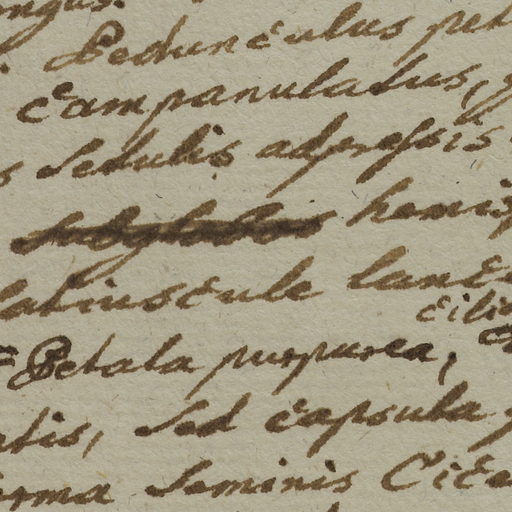 ongus.
Pedunculus pet
campanulatus,
s setulis adpressis
subglobois hemis
latiuscule lance
cili
Petala purpurea,
atis, sed capsula
orma seminis Cice